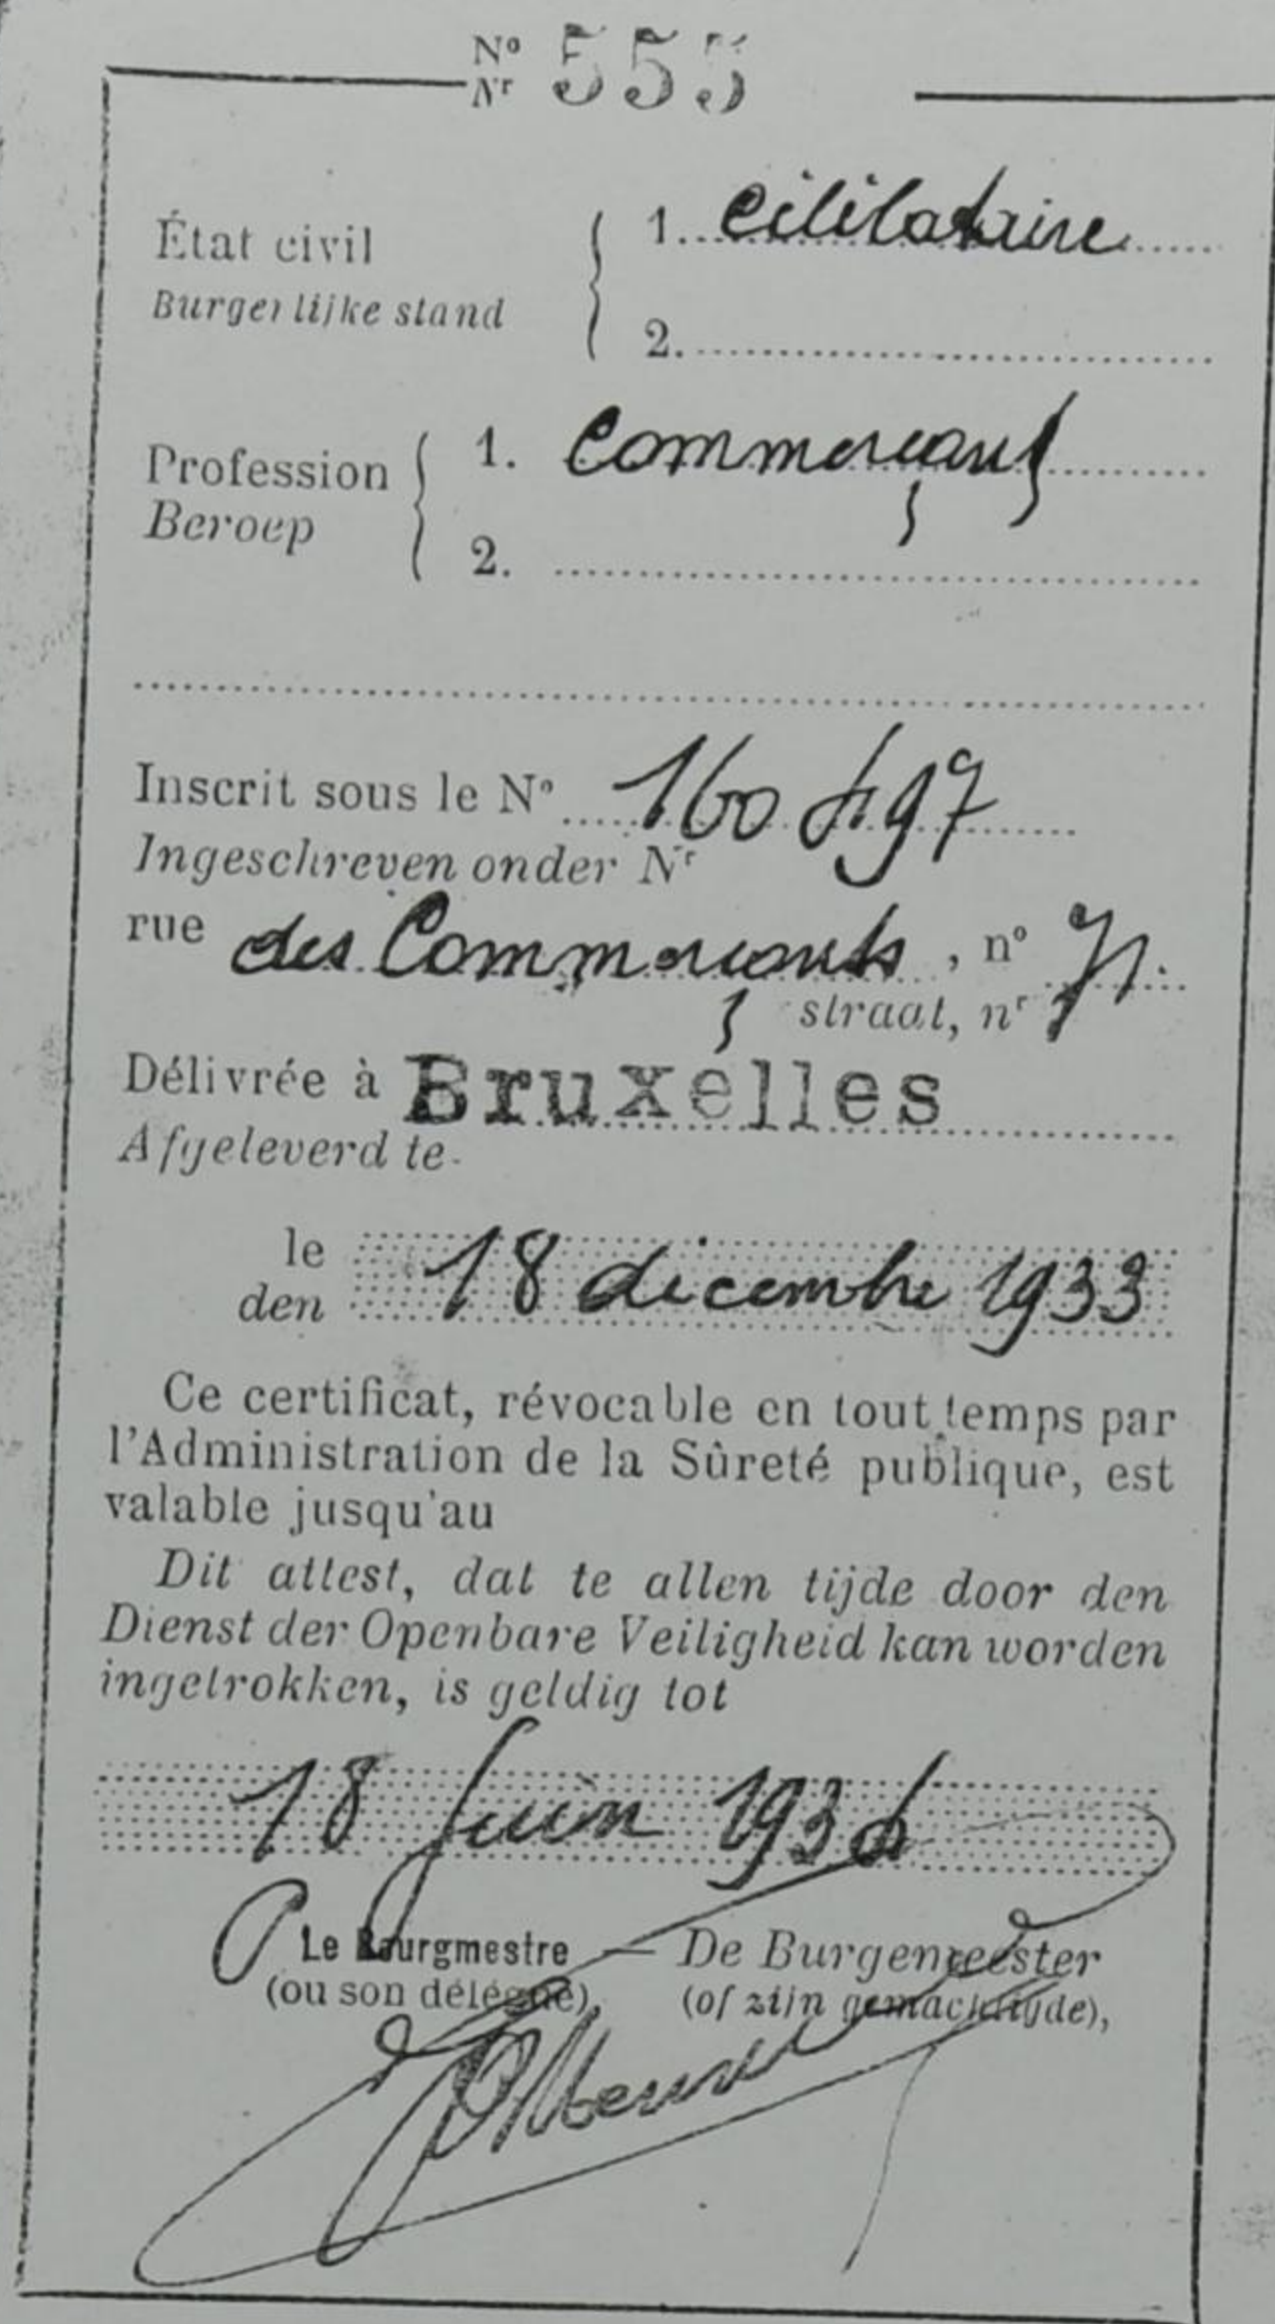 Nº 555
Nr
État civil 1. célibataire
Burgerlijke stand 2.
Profession 1. Commerçant
Beroep 2.
Inscrit sous le Nº 160497
Ingeschreven onder Nr
rue des Commerçants, nº 71.
straat, nr
Délivrée à Bruxelles
Afgeleverd te
le 18 décembre 1933
den
Ce certificat, révocable en tout temps par
l'Administration de la Sûreté publique, est
valable jusqu'au
Dit attest, dat te allen tijde door den
Dienst der Openbare Veiligheid kan worden
ingetrokken, is geldig tot
18 Juin 1934
Le Bourgmestre — De Burgemeester
(ou son délégué), (of zijn gemachtigde),